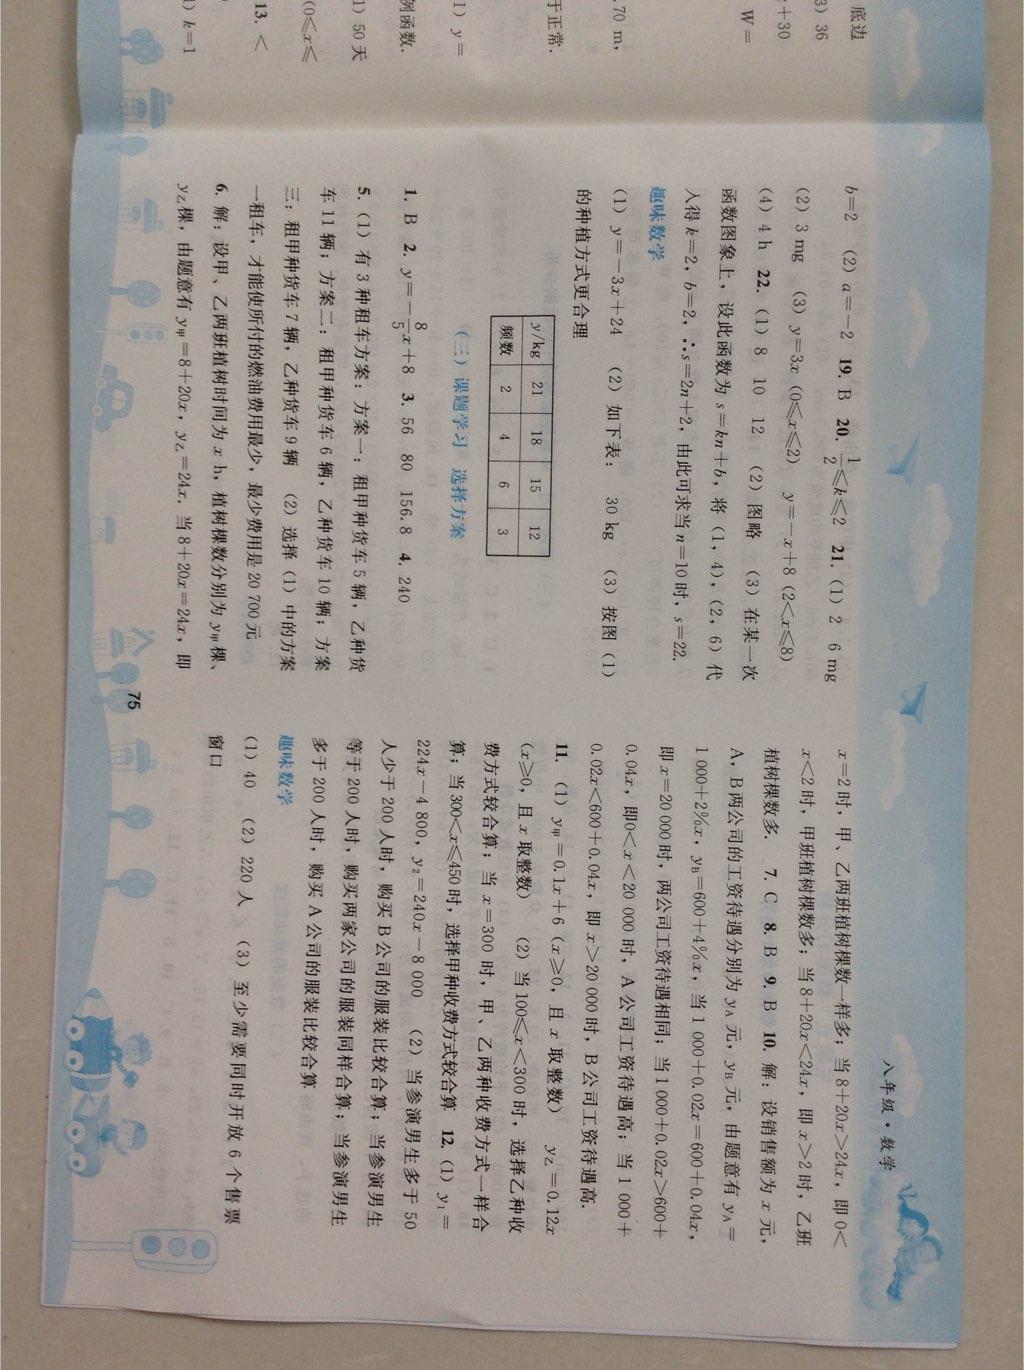 底边
3) 36
+30
W=
.70 m,
于正常.
1) y=
例函数.
1) 50 天
(0≤x≤
13. <
) k=1
八年级·数学
b=2 (2) a=-2 19. B 20. 1/2≤k≤2 21. (1) 2 6 mg
(2) 3 mg (3) y=3x (0≤x≤2) y=-x+8 (2<x≤8)
(4) 4 h 22. (1) 8 10 12 (2) 图略 (3) 在某一次
函数图象上,设此函数为 s=kn+b,将 (1, 4),(2, 6) 代
入得 k=2, b=2, ∴s=2n+2, 由此可求当 n=10 时, s=22.
趣味数学
(1) y=-3x+24 (2) 如下表: 30 kg (3) 按图 (1)
的种植方式更合理
y/kg 21 18 15 12
频数 2 4 6 3
(三) 课题学习 选择方案
1. B 2. y=-8/5x+8 3. 56 80 156.8 4. 240
5. (1) 有 3 种租车方案:方案一:租甲种货车 5 辆,乙种货
车 11 辆;方案二:租甲种货车 6 辆,乙种货车 10 辆;方案
三:租甲种货车 7 辆,乙种货车 9 辆 (2) 选择 (1) 中的方案
一租车,才能使所付的燃油费用最少,最少费用是 20 700 元
6. 解:设甲、乙两班植树时间为 x h,植树棵数分别为 y甲 棵、
y乙 棵,由题意有 y甲=8+20x, y乙=24x. 当 8+20x=24x, 即
x=2 时,甲、乙两班植树棵数一样多;当 8+20x>24x, 即 0<
x<2 时,甲班植树棵数多;当 8+20x<24x, 即 x>2 时,乙班
植树棵数多. 7. C 8. B 9. B 10. 解:设销售额为 x 元,
A, B 两公司的工资待遇分别为 yA 元, yB 元,由题意有 yA=
1 000+2%x, yB=600+4%x, 当 1 000+0.02x=600+0.04x,
即 x=20 000 时,两公司工资待遇相同;当 1 000+0.02x>600+
0.04x, 即0<x<20 000 时, A 公司工资待遇高;当 1 000+
0.02x<600+0.04x, 即 x>20 000 时, B 公司工资待遇高.
11. (1) y甲=0.1x+6 (x≥0, 且 x 取整数) y乙=0.12x
(x≥0, 且 x 取整数) (2) 当 100≤x<300 时,选择乙种收
费方式较合算;当 x=300 时,甲、乙两种收费方式一样合
算;当 300<x≤450 时,选择甲种收费方式较合算 12. (1) y1=
224x-4 800, y2=240x-8 000 (2) 当参演男生多于 50
人少于 200 人时,购买 B 公司的服装比较合算;当参演男生
等于 200 人时,购买两家公司的服装同样合算;当参演男生
多于 200 人时,购买 A 公司的服装比较合算
趣味数学
(1) 40 (2) 220 人 (3) 至少需要同时开放 6 个售票
窗口
75